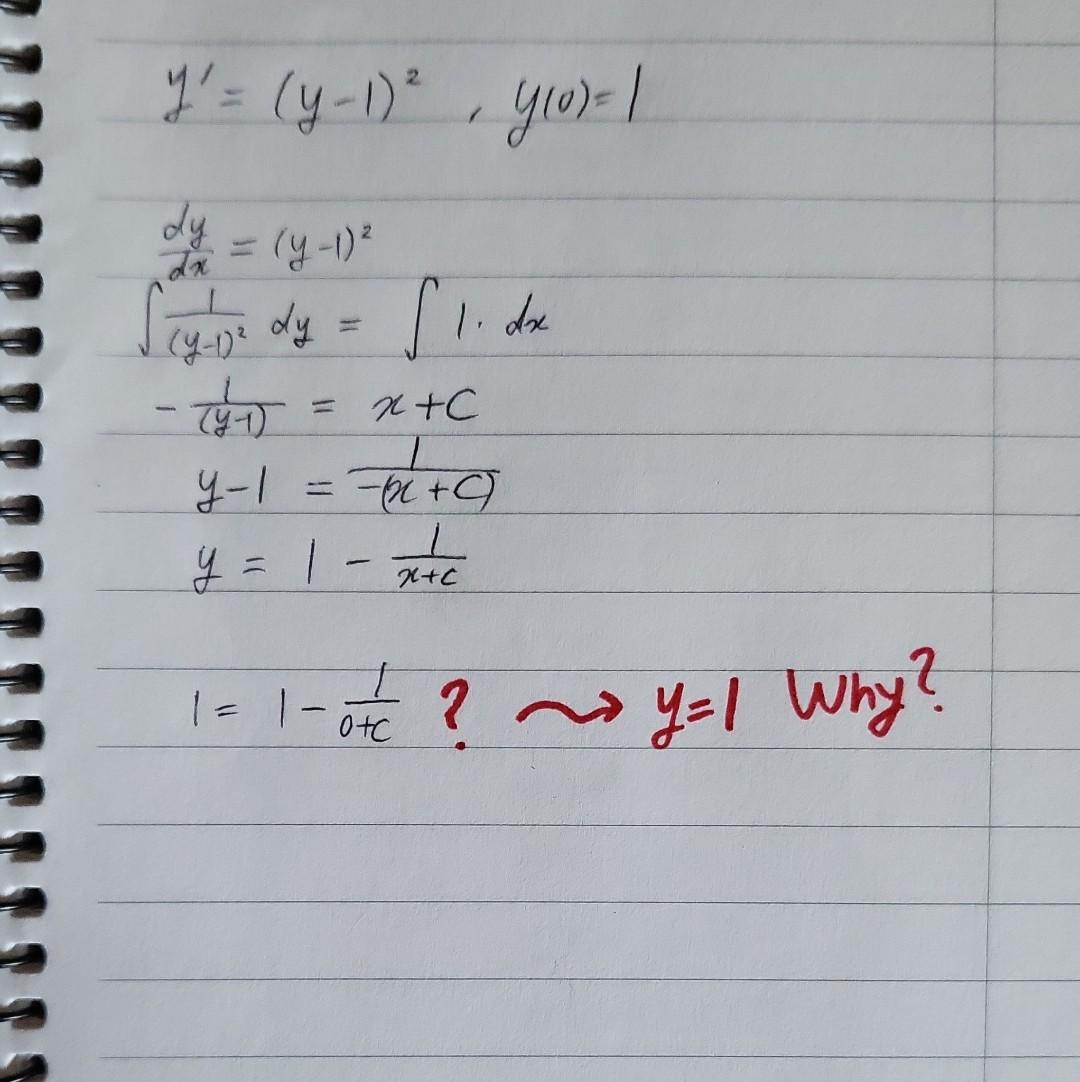 y' = (y-1)² , y(0)=1
dy/dx = (y-1)²
∫ 1/(y-1)² dy = ∫ 1. dx
- 1/(y-1) = x+C
y-1 = 1/-(x+C)
y = 1 - 1/x+c
1 = 1 - 1/0+C ? ⇝ y=1 Why?